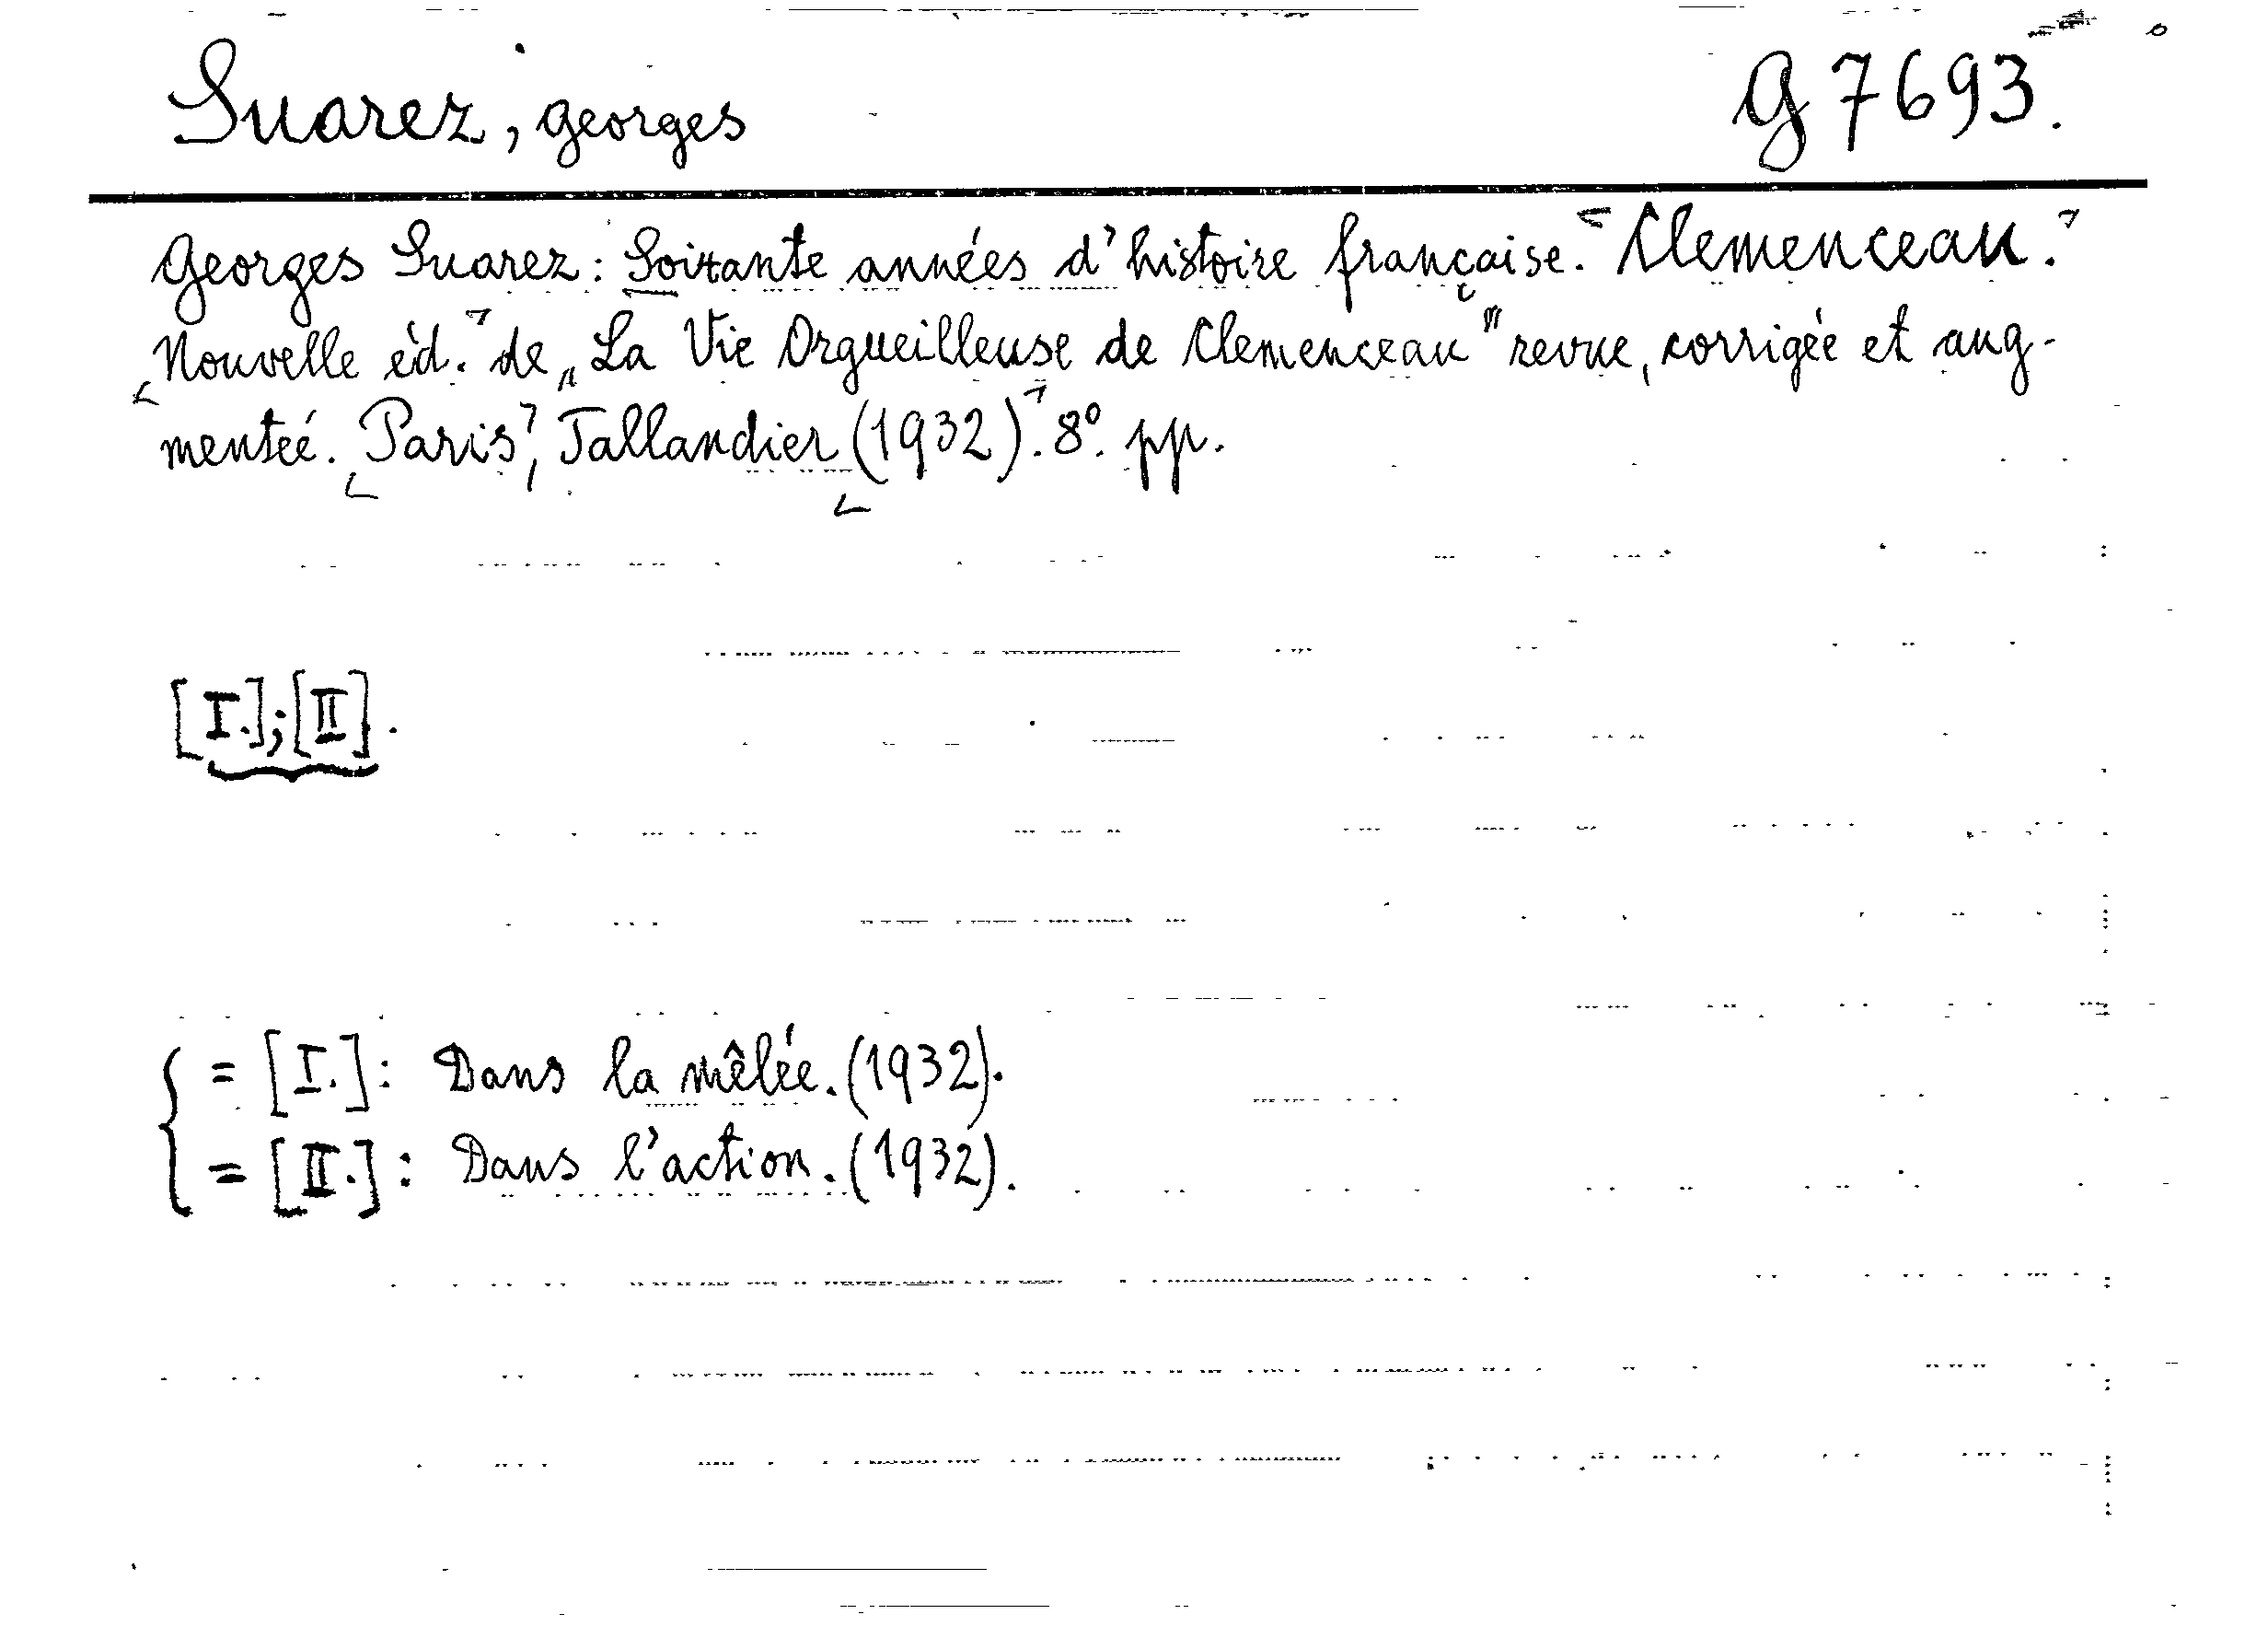 Suarez, Georges
G 7693.
Georges Suarez: Soixante années d'histoire française. Clemenceau.
Nouvelle éd. de „La Vie Orgueilleuse de Clemenceau" revue, corrigée et aug-
mentée. Paris, Tallandier (1932). 8°. pp.
[I.]; [II].
= [I.]: Dans la mêlée. (1932).
= [II.]: Dans l'action. (1932).